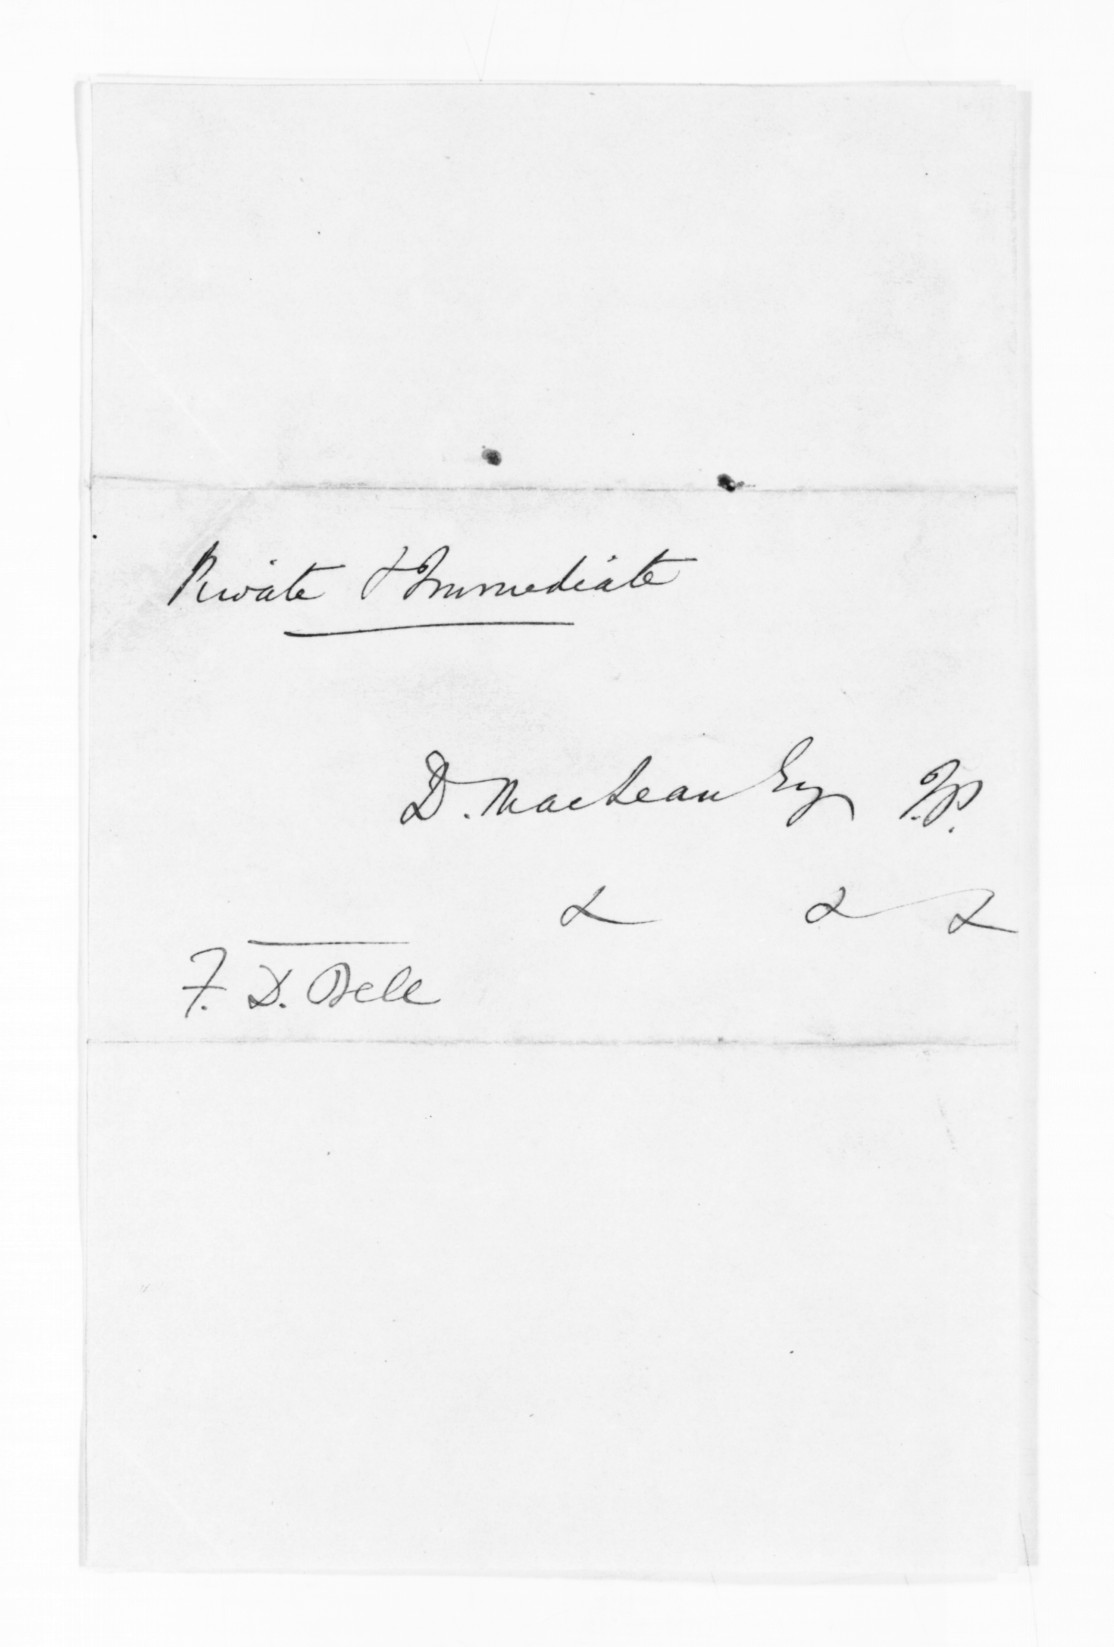 Private & Immediate
D. MacLean Esq J.P.
& & &
F. D. Bell